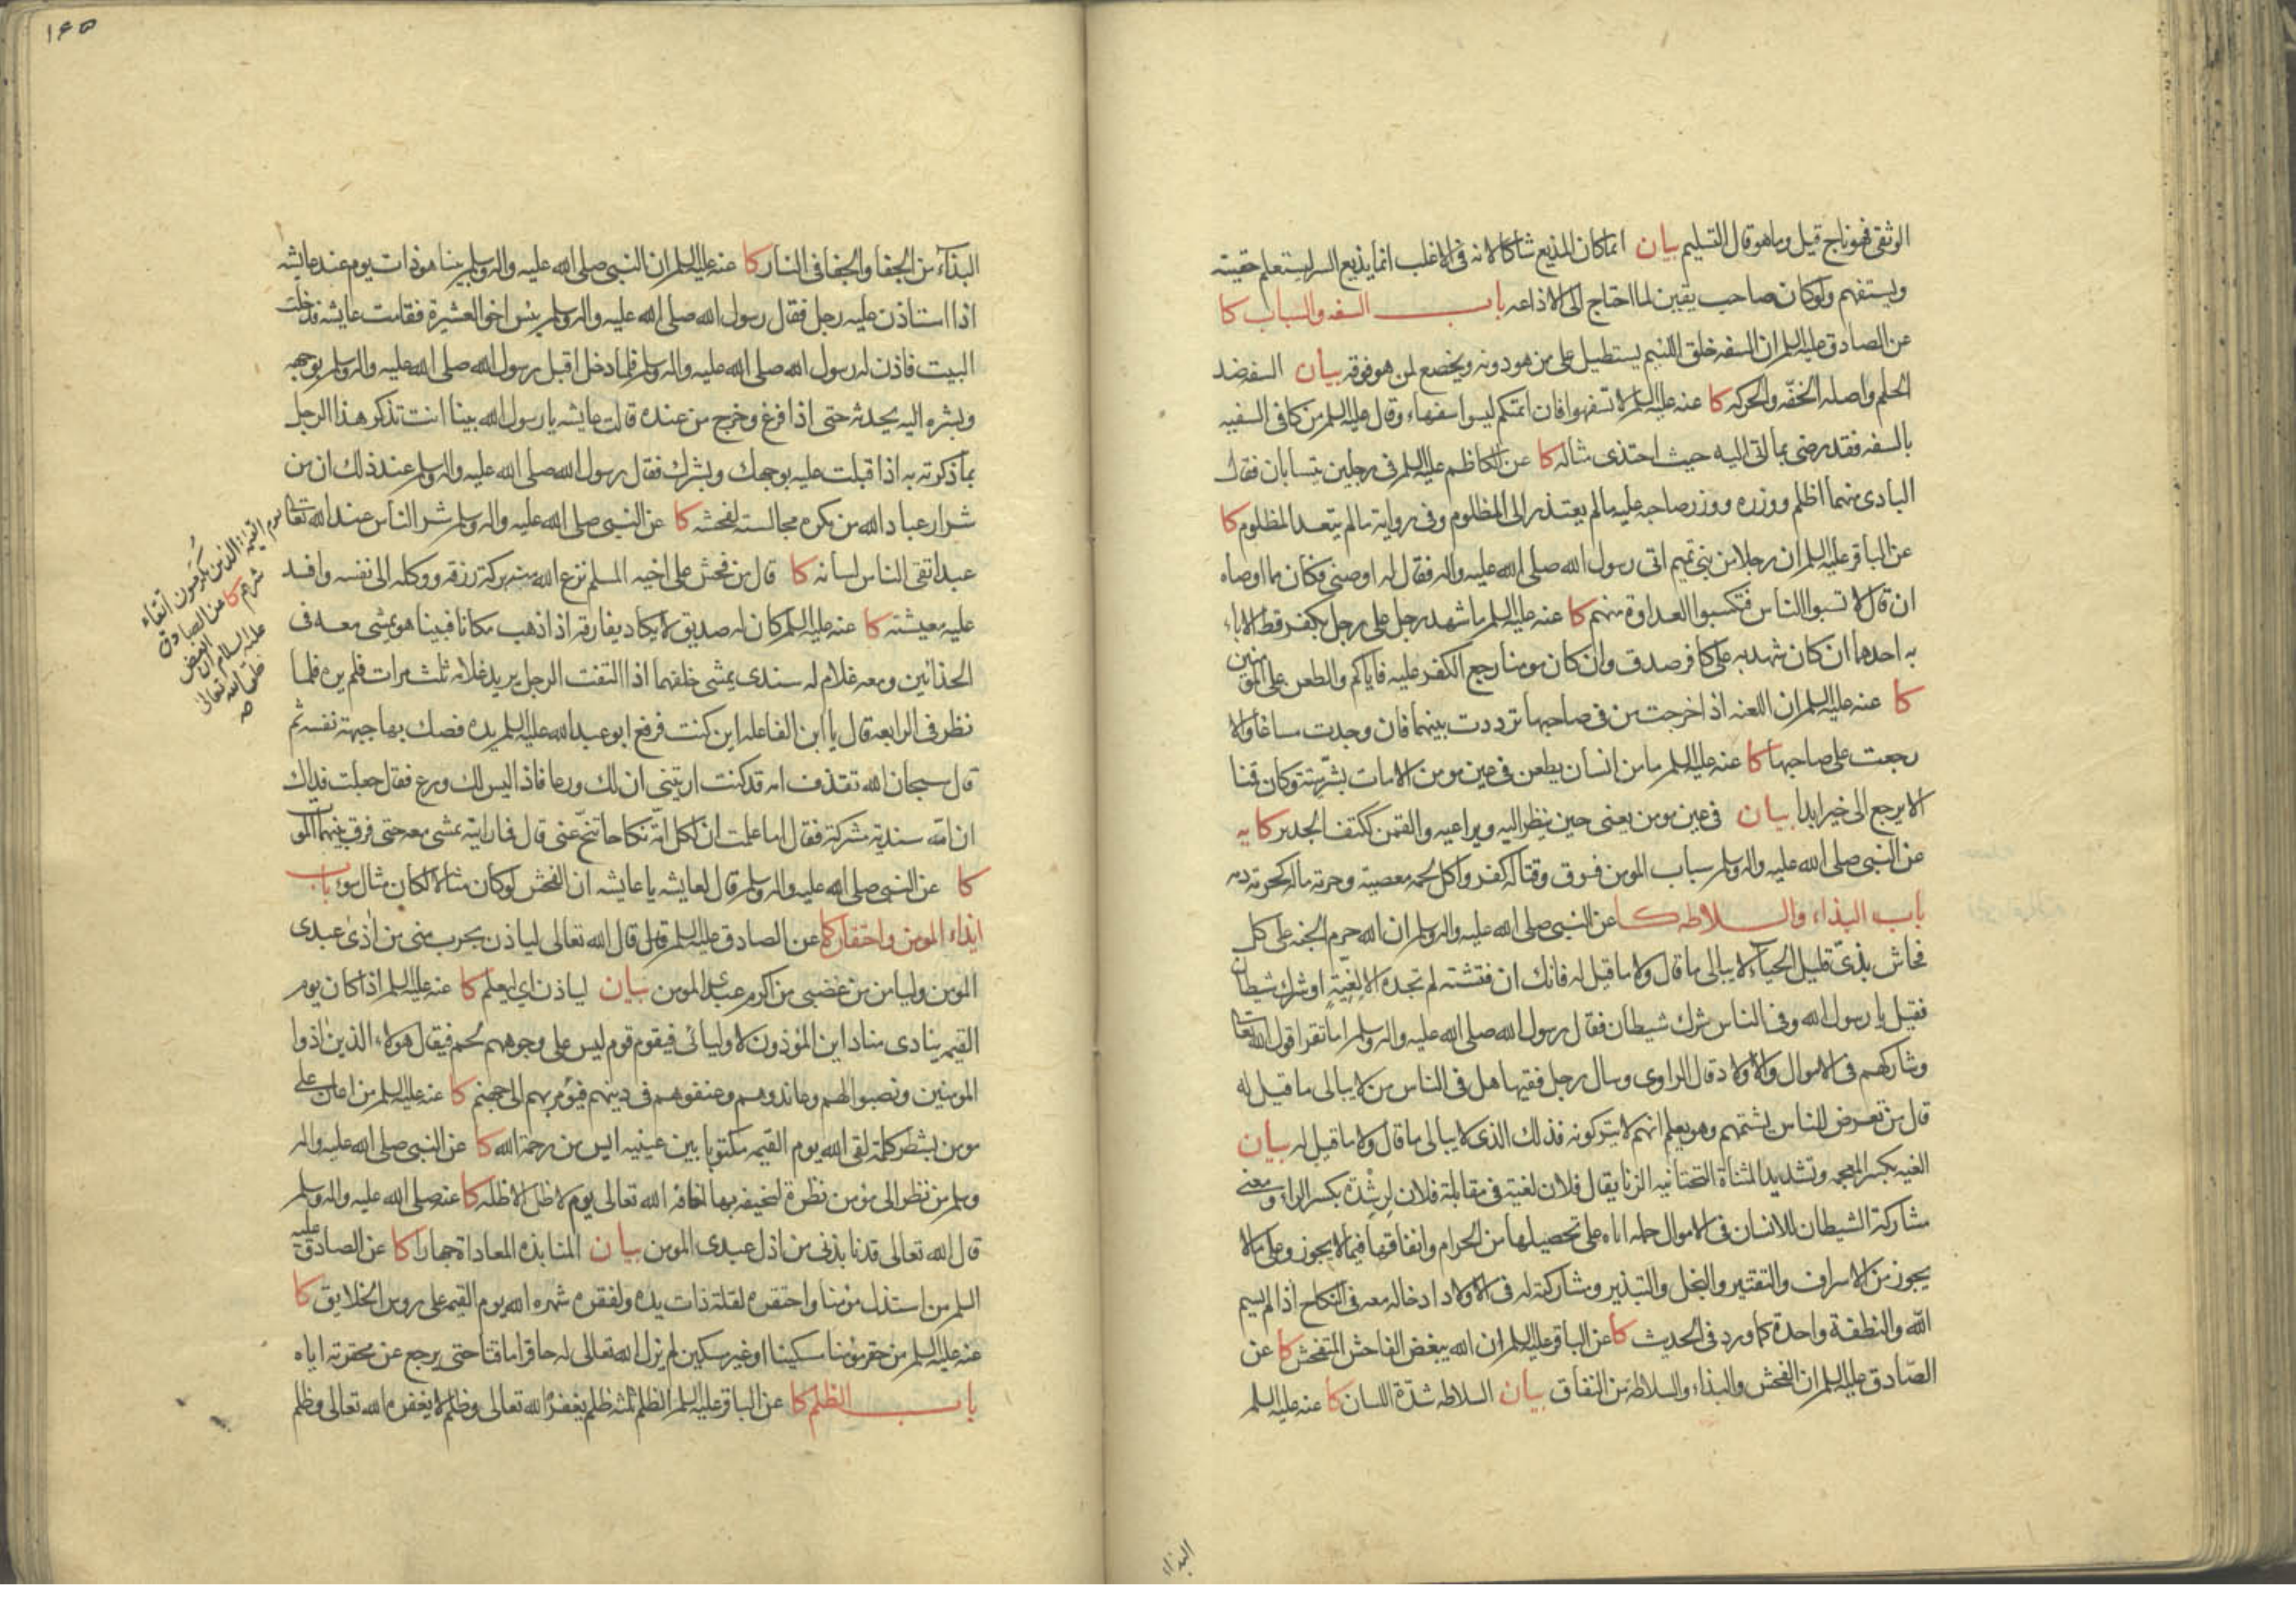 الوثقى فهو ناج قيل وما هو قال التسليم بيان انما كان المذيع شاكا لانه فى الاغلب انما يذيع السر ليستعلم حقيته
ويستفهم ولو كان صاحب يقين لما احتاج الى الاذاعه باب السفه والسباب كا
عن الصادق عليه السلم ان السفه خلق اللئيم يستطيل على من هو دونه ويخضع لمن هو فوقه بيان السفه ضد
الحلم واصله الخفّه والحركه كا عنه عليه السلم لا تسفهوا فان ائمتكم ليسوا سفهاء وقال عليه السلم من كافى السفيه
بالسفه فقد رضى بما اتى اليه حيث احتذى مثاله كا عن الكاظم عليه السلم فى رجلين يتسابان فقال
البادى منهما اظلم ووزره ووزر صاحبه عليه ما لم يعتذر الى المظلوم وفى رواية ما لم يتعد المظلوم كا
عن الباقر عليه السلم ان رجلا من بنى تميم اتى رسول الله صلى الله عليه واله فقال له اوصنى فكان مما اوصاه
ان قال لا تسبوا الناس فتكسبوا العداوة منهم كا عنه عليه السلم ما شهد رجل على رجل بكفر قط الا باء
به احدهما ان كان شهد به على كافر صدق وان كان مومنا رجع الكفر عليه فاياكم والطعن على المومنين
كا عنه عليه السلم ان اللعنه اذا خرجت من فى صاحبها ترددت بينهما فان وجدت مساغا والا
رجعت على صاحبها كا عنه عليه السلم ما من انسان يطعن فى عين مومن الا مات بشرّ ميتة وكان قمنا
الا يرجع الى خير ابدا بيان فى عين مومن يعنى حين ينظر اليه ويراعيه والقمن ككتف الجدير كا يه
عن النبى صلى الله عليه واله وسلم سباب المومن فسوق وقتاله كفر واكل لحمه معصية وحرمة ماله كحرمة دمه
باب البذاء والسلاطه كا عن النبى صلى الله عليه واله وسلم ان الله حرم الجنه على كل
فحاش بذىّ قليل الحياء لا يبالى ما قال ولا ما قيل له فانك ان فتشته لم تجده الا لغيّةٍ او شرك شيطان
فقيل يا رسول الله وفى الناس شرك شيطان فقال رسول الله صلى الله عليه واله وسلم اما تقرا قول الله تعالى
وشاركهم فى الاموال والاولاد قال الراوى وسال رجل فقيها هل فى الناس من لا يبالى ما قيل له
قال من تعرض للناس يشتمهم وهو يعلم انهم لا يتركونه فذلك الذى لا يبالى ما قال ولا ما قيل له بيان
الغيه بكسر المعجمه وتشديد المثناة التحتانيه الزنا يقال فلان لغية فى مقابلة فلان لرِشْدة بكسر الراء ومعنى
مشاركة الشيطان للانسان فى الاموال حمله اياه على تحصيلها من الحرام وانفاقها فيما لا يجوز وعلى ما لا
يجوز من الاسراف والتقتير والبخل والتبذير ومشاركته له فى الاولاد ادخاله معه فى النكاح اذا لم يسم
الله والنطفة واحدة كما ورد فى الحديث كا عن الباقر عليه السلم ان الله يبغض الفاحش المتفحش كا عن
الصّادق عليه السلم ان الفحش والبذاء والسلاطة من النفاق بيان السلاطه شدّة اللسان كا عنه عليه السلم
البذاء
١٤٥
البذاء من الجفا والجفا فى النار كا عنه عليه السلم ان النبى صلى الله عليه واله وسلم بينا هو ذات يوم عند عايشه
اذا استاذن عليه رجل فقال رسول الله صلى الله عليه واله وسلم بئس اخو العشيرة فقامت عايشه فدخلت
البيت فاذن له رسول الله صلى الله عليه واله وسلم فلما دخل اقبل رسول الله صلى الله عليه واله وسلم بوجهه
وبشره اليه يحدثه حتى اذا فرغ وخرج من عنده قالت عايشه يا رسول الله بينا انت تذكر هذا الرجل
بما ذكرته به اذ اقبلت عليه بوجهك وبشرك فقال رسول الله صلى الله عليه واله وسلم عند ذلك ان من
شرار عباد الله من تكره مجالسته لفحشه كا عن النبى صلى الله عليه واله وسلم شر الناس عند الله تعالى
يوم القيمة الذين يكرمون اتقاء
شرهم كا عن الصادق
عليه السلام ان
خلق الله تعالى
صه
عبد اتقى الناس لسانه كا قال من فحش على اخيه المسلم نزع الله منه بركة رزقه ووكله الى نفسه وافسد
عليه معيشته كا عنه عليه السلم كان له صديق لا يكاد يفارقه اذا ذهب مكانا فبينا هو يمشى معه فى
الحذائين ومعه غلام له سندى يمشى خلفهما اذا التفت الرجل يريد غلامه ثلث مرات فلم يره فلما
نظر فى الرابعه قال يا ابن الفاعله اين كنت فرفع ابو عبد الله عليه السلم يده فصك بها جبهة نفسه ثم
قال سبحان الله تقذف امه قد كنت اريتنى ان لك ورعا فاذا ليس لك ورع فقال جعلت فداك
ان امّه سندية مشركة فقال اما علمت ان لكل امة نكاحا تنحّ عنى قال فما رايته يمشى معه حتى فرق بينهما الموت
كا عن النبى صلى الله عليه واله وسلم قال لعايشه يا عايشه ان الفحش لو كان مثالا لكان مثال سوء باب
ايذاء المومن واحتقاره كا عن الصادق عليه السلم قال قال الله تعالى لياذن بحرب منى من اذى عبدى
المومن وليامن من غضبى من اكرم عبدى المومن بيان لياذن اي ليعلم كا عنه عليه السلم اذا كان يوم
القيمه ينادى مناد اين الموذون لاوليائى فيقوم قوم ليس على وجوههم لحم فيقال هولاء الذين اذوا
المومنين ونصبوا لهم وعاندوهم وعنفوهم فى دينهم فيؤمر بهم الى جهنم كا عنه عليه السلم من اعان على
مومن بشطر كلمة لقى الله يوم القيمه مكتوبا بين عينيه ايس من رحمة الله كا عن النبى صلى الله عليه واله
وسلم من نظر الى مؤمن نظرة ليخيفه بها اخافه الله تعالى يوم لا ظل الا ظله كا عنه صلى الله عليه واله وسلم
قال الله تعالى قد نابذنى من اذل عبدى المومن بيان المنابذه المعاداة جهارا كا عن الصادق عليه
السلم من استذل مؤمنا واحتقره لقلة ذات يده ولفقره شهره الله يوم القيمه على روس الخلايق كا
عنه عليه السلم من حقر مؤمنا مسكينا او غير مسكين لم يزل الله تعالى له حاقرا ماقتا حتى يرجع عن محقرته اياه
باب الظلم كا عن الباقر عليه السلم الظلم ثلثه ظلم يغفره الله تعالى وظلم لا يغفره الله تعالى وظلم